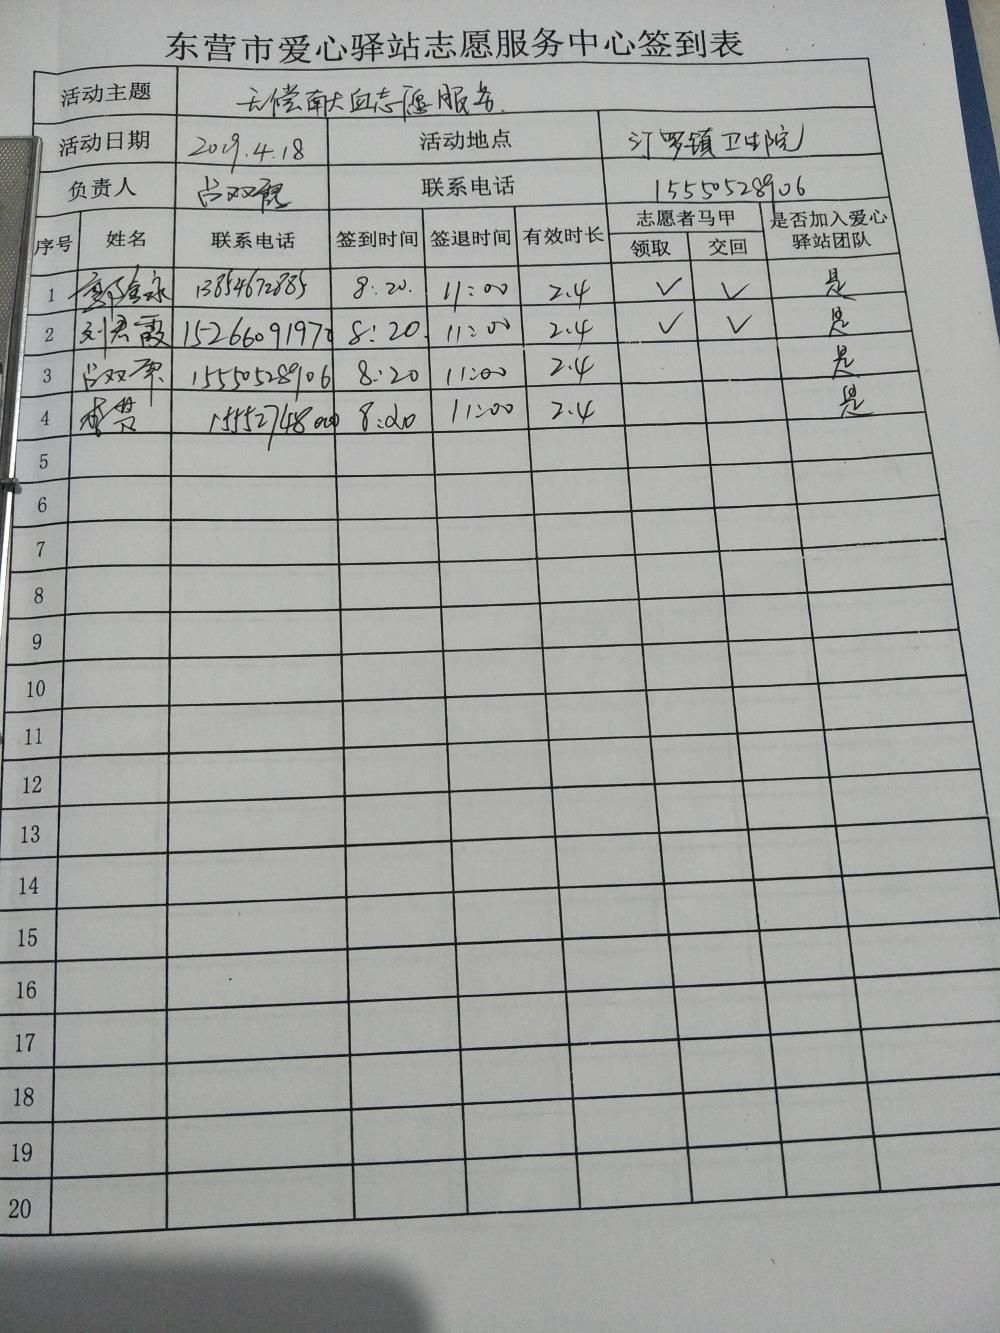 东营市爱心驿站志愿服务中心签到表
活动主题 无偿献血志愿服务
活动日期 2019.4.18 活动地点 汀罗镇卫生院
负责人 联系电话 15550528906
序号 姓名 联系电话 签到时间 签退时间 有效时长 志愿者马甲 领取 交回 是否加入爱心驿站团队
1 13854672885 8:20 11:00 2.4 ✓ ✓ 是
2 刘君霞 15266091970 8:20 11:00 2.4 ✓ ✓ 是
3 15550528906 8:20 11:00 2.4 是
4 15552748000 8:20 11:00 2.4 是
5
6
7
8
9
10
11
12
13
14
15
16
17
18
19
20